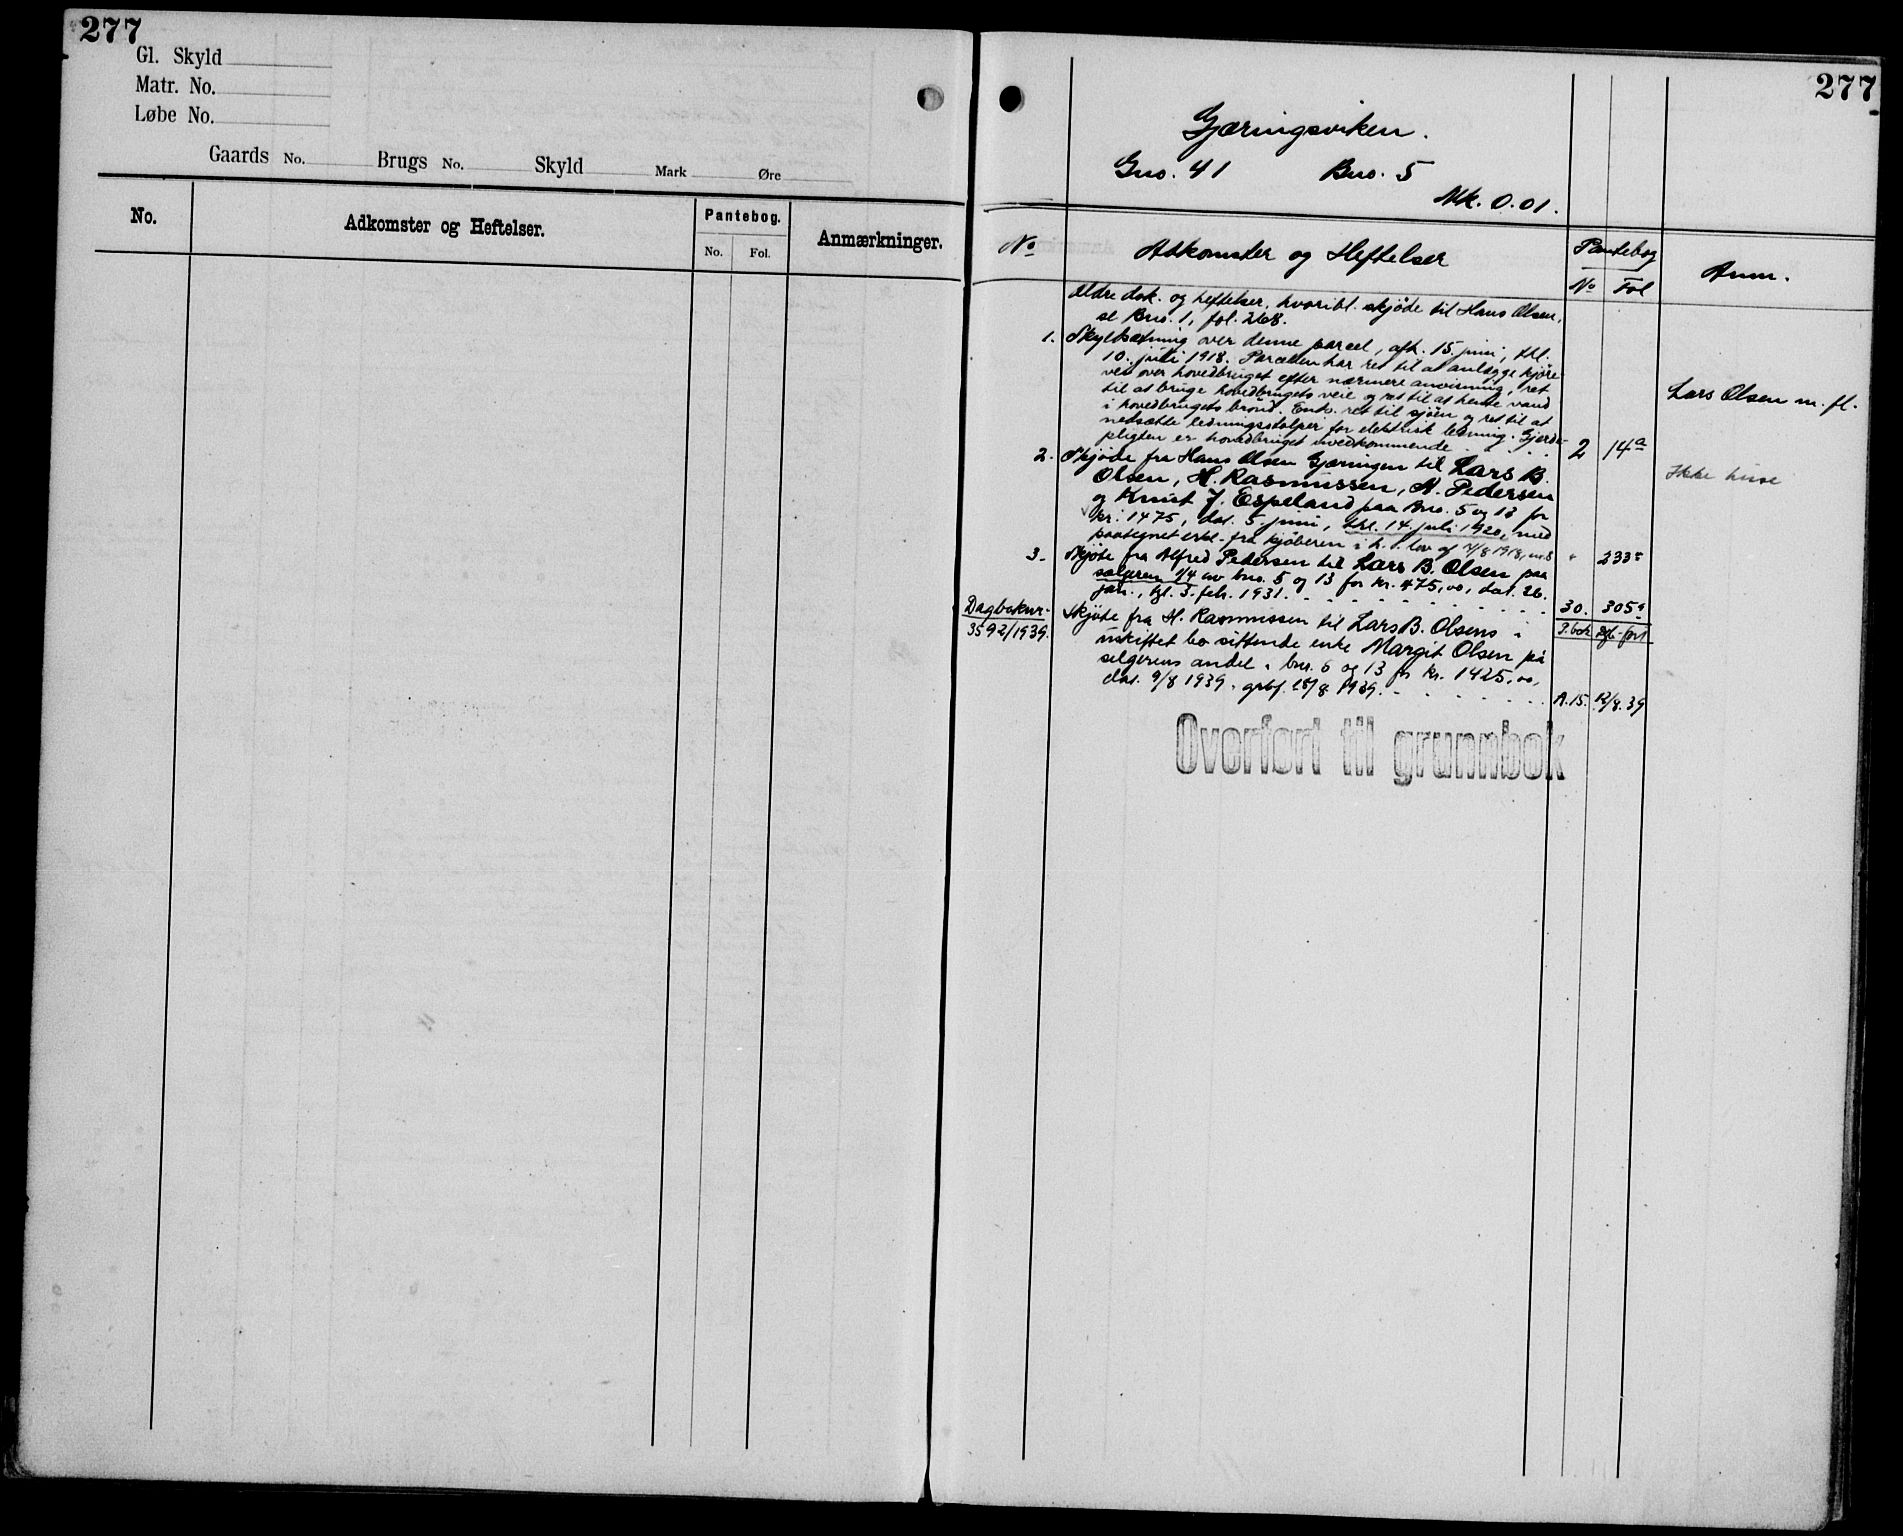 277
Gl. Skyld
Matr. No.
Løbe No.
Gaards No. Brugs No. Skyld Mark Øre
No.
Adkomster og Heftelser.
Pantebog.
No. Fol.
Anmærkninger.
277
Gjæringsviken.
Gno. 41 Bno. 5
Mk. 0.01.
No
Adkomster og Heftelser
Pantebog
No Fol
Anm.
Ældre dok. og heftelser, hvoribl. skjøde til Hans Olsen,
se Bno. 1, fol. 268.
1. Skyldsætning over denne parcel, afh. 15. juni, thl.
10. juli 1918. Parcellen har ret til at anlægge kjøre-
vei over hovedbruget efter nærmere anvisning, ret
til at bruge hovedbrugets veie og ret til at hente vand
i hovedbrugets brønd. Enh. ret til sjøen og ret til at
nedsætte ledningsstolper for elektrisk ledning. Gjerde-
pligten er hovedbruget uvedkommende . . . . 2 14a
Lars Olsen m. fl.
2. Skjøde fra Hans Olsen Gjæringen til Lars B.
Olsen, H. Rasmussen, A. Pedersen
og Knut J. Espeland paa Bno. 5 og 13 for
kr. 1475, dat. 5. juni, thl. 14. juli 1920, med
paategnet erkl. fra kjøberen i h. t. lov af 7/8 1918, m.8 " 233
Ikke huse
3. Skjøte fra Alfred Pedersen til Lars B. Olsen paa
sælgeren 1/4 av bno. 5 og 13 for kr. 475,00, dat. 26.
jan., tgl. 3. feb. 1931. 30. 305a
Dagboknr.
3592/1939.
P.bok dgb.-ført
Skjøte fra H. Rasmussen til Lars B. Olsens i
uskiftet bo sittende enke Margit Olsen på
selgerens andel i bnr. 5 og 13 for kr. 1425,00,
dat. 9/8 1939, grbf. 18/8 1939. A.15. 12/8.39
Overført til grunnbok